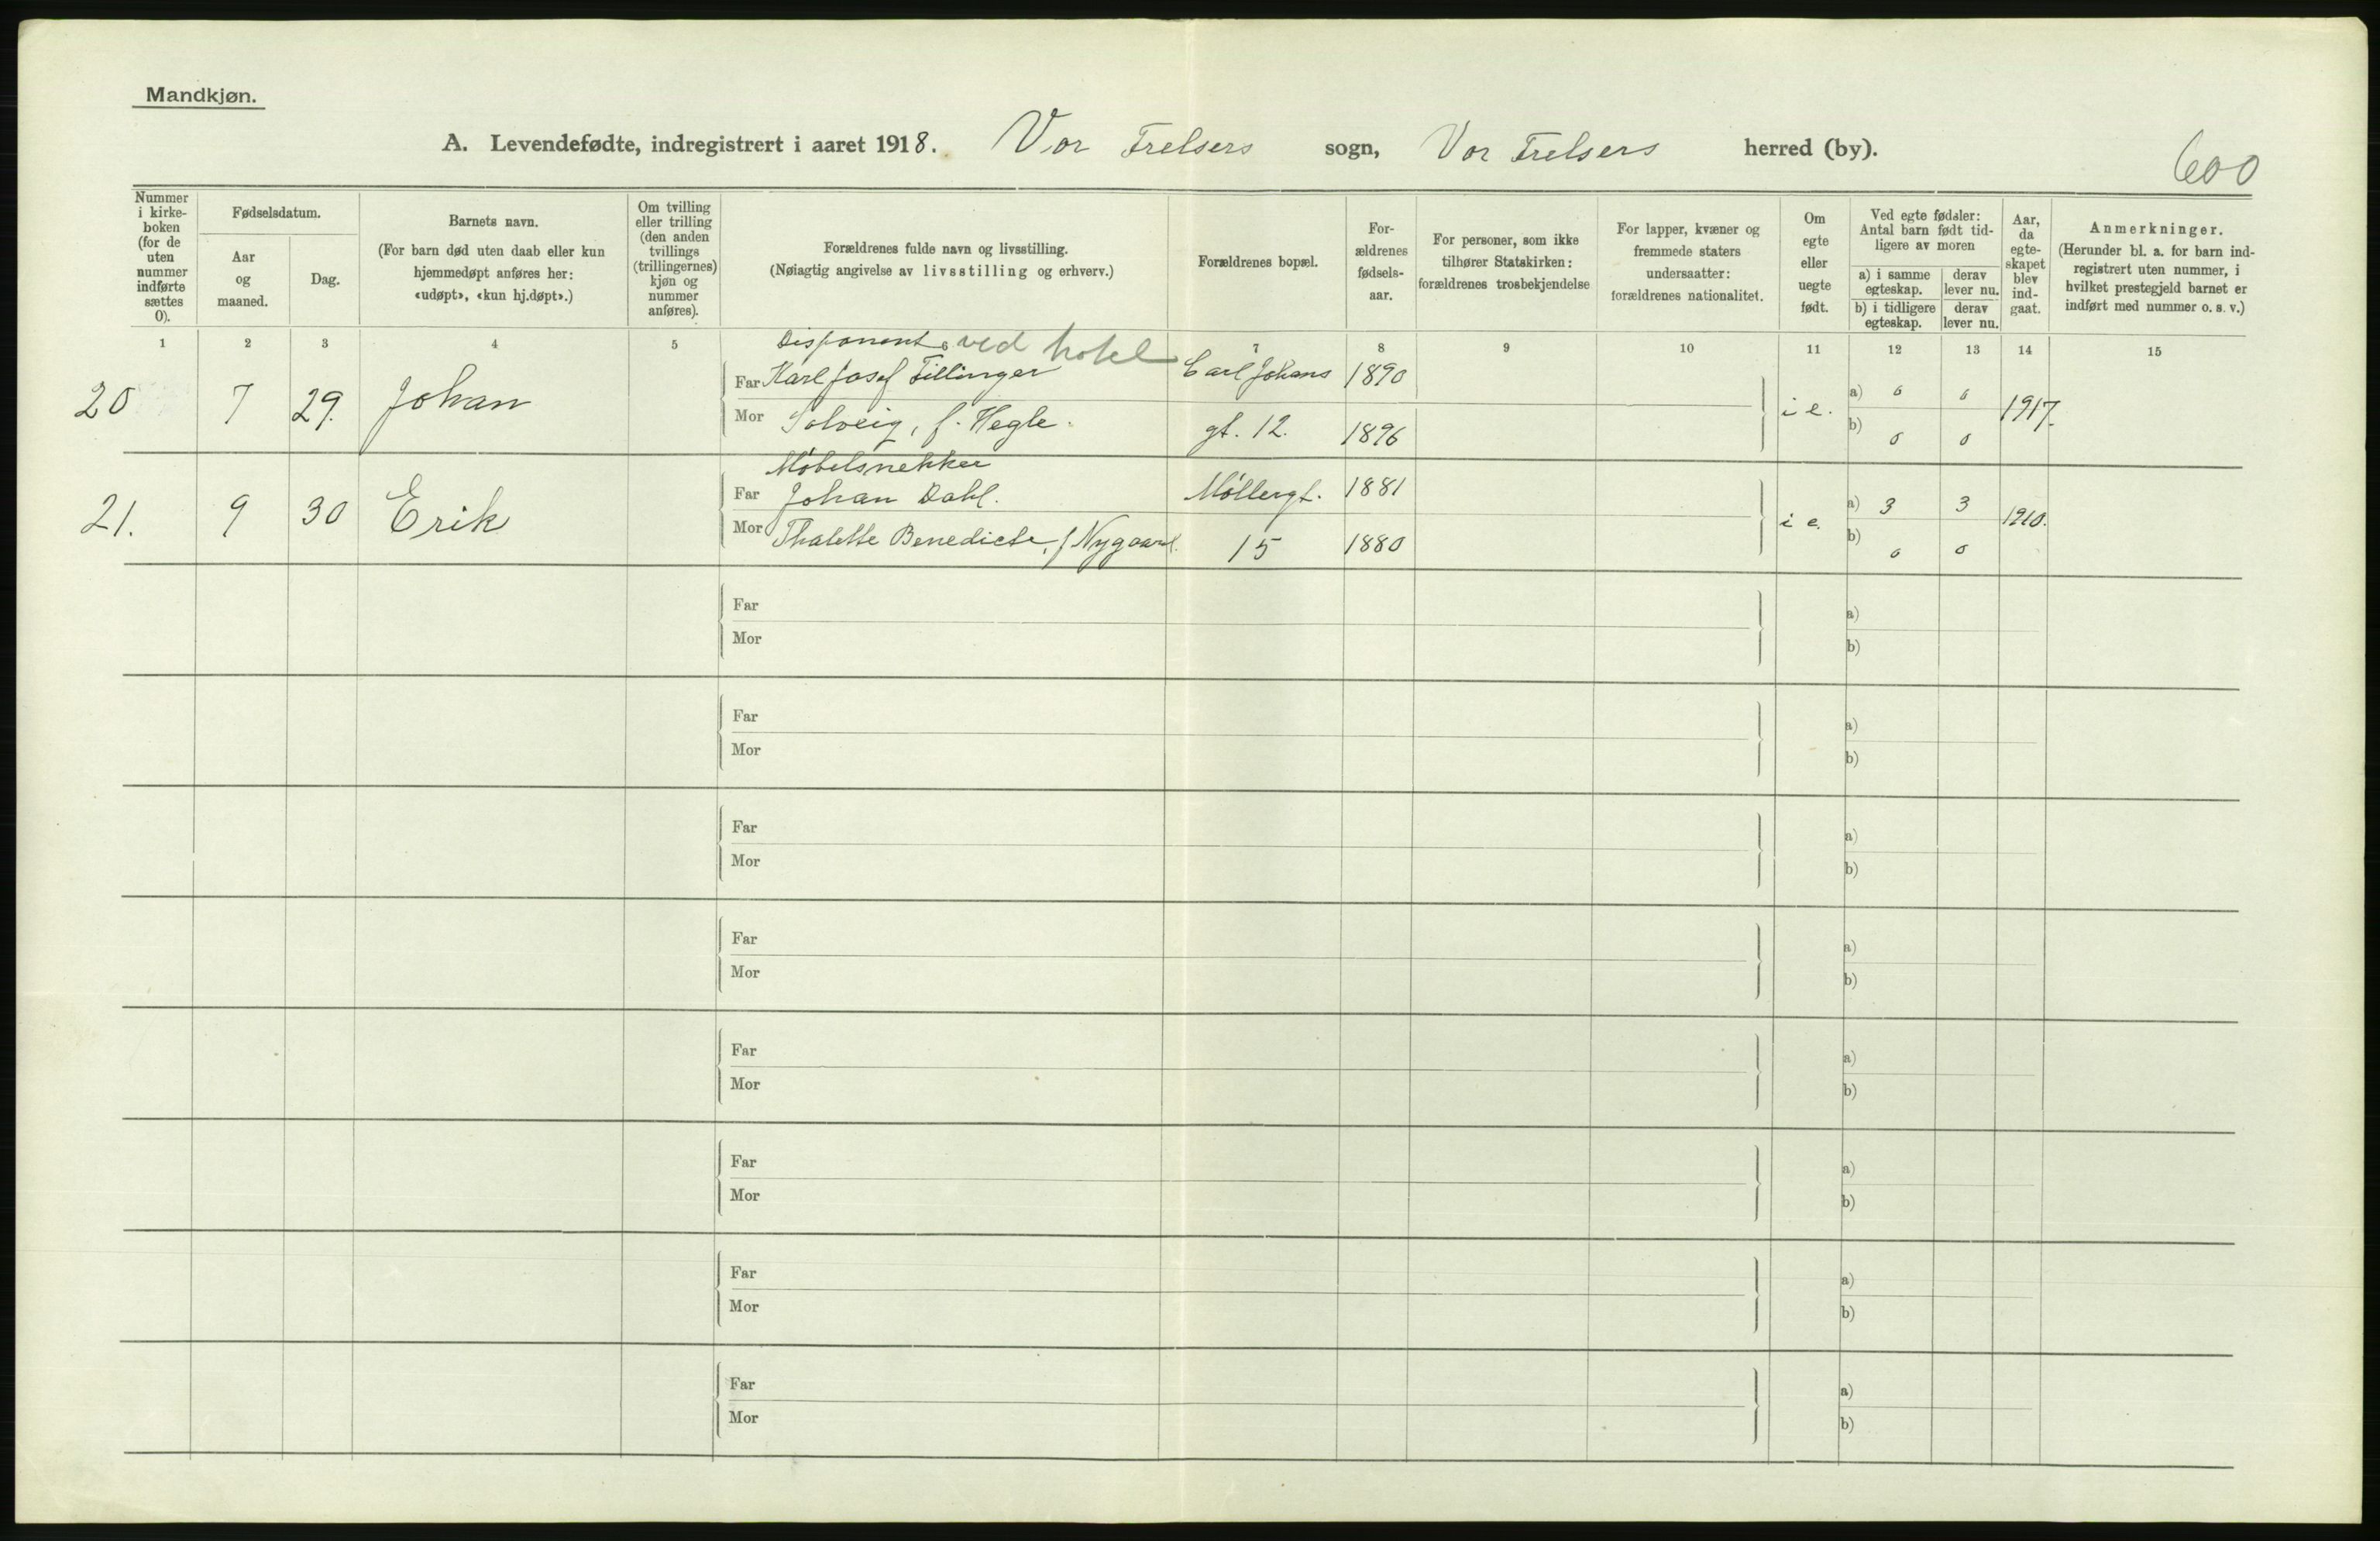 Mandkjøn.
A. Levendefødte, indregistrert i aaret 1918. Vor Frelsers sogn, Vor Frelsers herred (by).
600
Nummer i kirke-boken (for de uten nummer indførte sættes 0).
Fødselsdatum.
Aar og maaned.
Dag.
Barnets navn.
(For barn død uten daab eller kun hjemmedøpt anføres her: «udøpt», «kun hj.døpt».)
Om tvilling eller trilling (den anden tvillings (trillingernes) kjøn og nummer anføres).
Forældrenes fulde navn og livsstilling.
(Nøiagtig angivelse av livsstilling og erhverv.)
Forældrenes bopæl.
For-ældrenes fødsels-aar.
For personer, som ikke tilhører Statskirken: forældrenes trosbekjendelse
For lapper, kvæner og fremmede staters undersaatter: forældrenes nationalitet.
Om egte eller uegte født.
Ved egte fødsler: Antal barn født tid-ligere av moren
a) i samme egteskap.
derav lever nu.
b) i tidligere egteskap.
derav lever nu.
Aar, da egte-skapet blev ind-gaat.
Anmerkninger.
(Herunder bl. a. for barn ind-registrert uten nummer, i hvilket prestegjeld barnet er indført med nummer o. s. v.)
1 2 3 4 5 7 8 9 10 11 12 13 14 15
Disponent ved hotel
20 7 29. Johan Far Karl Josef Fillinger Carl Johans 1890 i e. a) 0 0 1917.
Mor Solveig, f. Hegle. gt. 12. 1896 b) 0 0
Møbelsnekker
21. 9 30 Erik Far Johan Dahl. Møllergt. 1881 i e. a) 3 3 1910.
Mor Thalette Benedicte, f Nygaard. 15 1880 b) 0 0
Far a)
Mor b)
Far a)
Mor b)
Far a)
Mor b)
Far a)
Mor b)
Far a)
Mor b)
Far a)
Mor b)
Far a)
Mor b)
Far a)
Mor b)